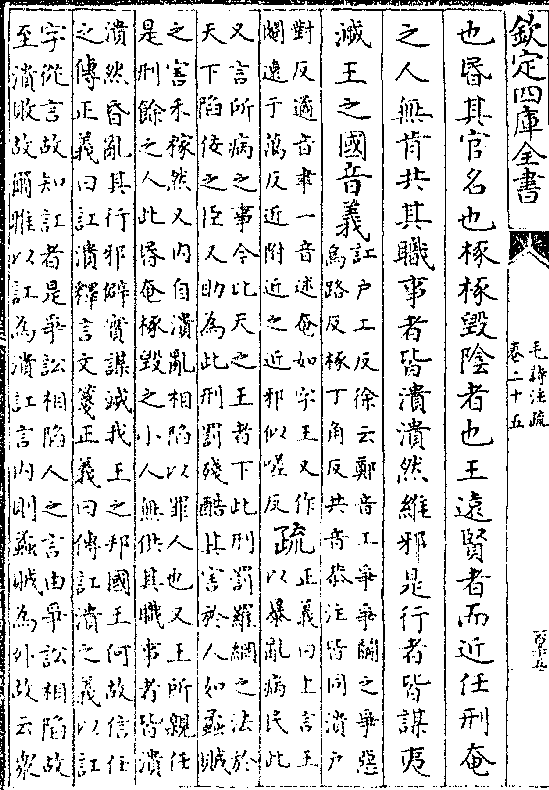 欽定四庫全書
毛詩注疏
卷二十五
也昬其官名也椓椓毀陰者也王遠賢者而近任刑奄
之人無肯共其職事者皆潰潰然維邪是行者皆謀夷
滅王之國音義
訌户工反徐云鄭音工爭爭鬭之爭惡
烏路反椓丁角反共音恭注皆同潰户
對反遹音聿一音述奄如字王又作
閹遠于萬反近附近之近邪似嗟反
疏
正義曰上言王
以暴亂病民此
又言所病之事令此天之王者下此刑罰羅網之法於
天下陷佞之臣又助為此刑罰殘酷其害於人如蟊賊
之害禾稼然又内自潰亂相陷以罪人也又王所親任
是刑餘之人此昬奄椓毀之小人無供其職事者皆潰
潰然昏亂其行邪僻實謀滅我王之邦國王何故信任
之傳正義曰訌潰釋言文箋正義曰傳訌潰之義以訌
字從言故知訌者是爭訟相陷人之言由爭訟相陷故
至潰敗故爾雅以訌為潰訌言内則蟊賊為外故云衆